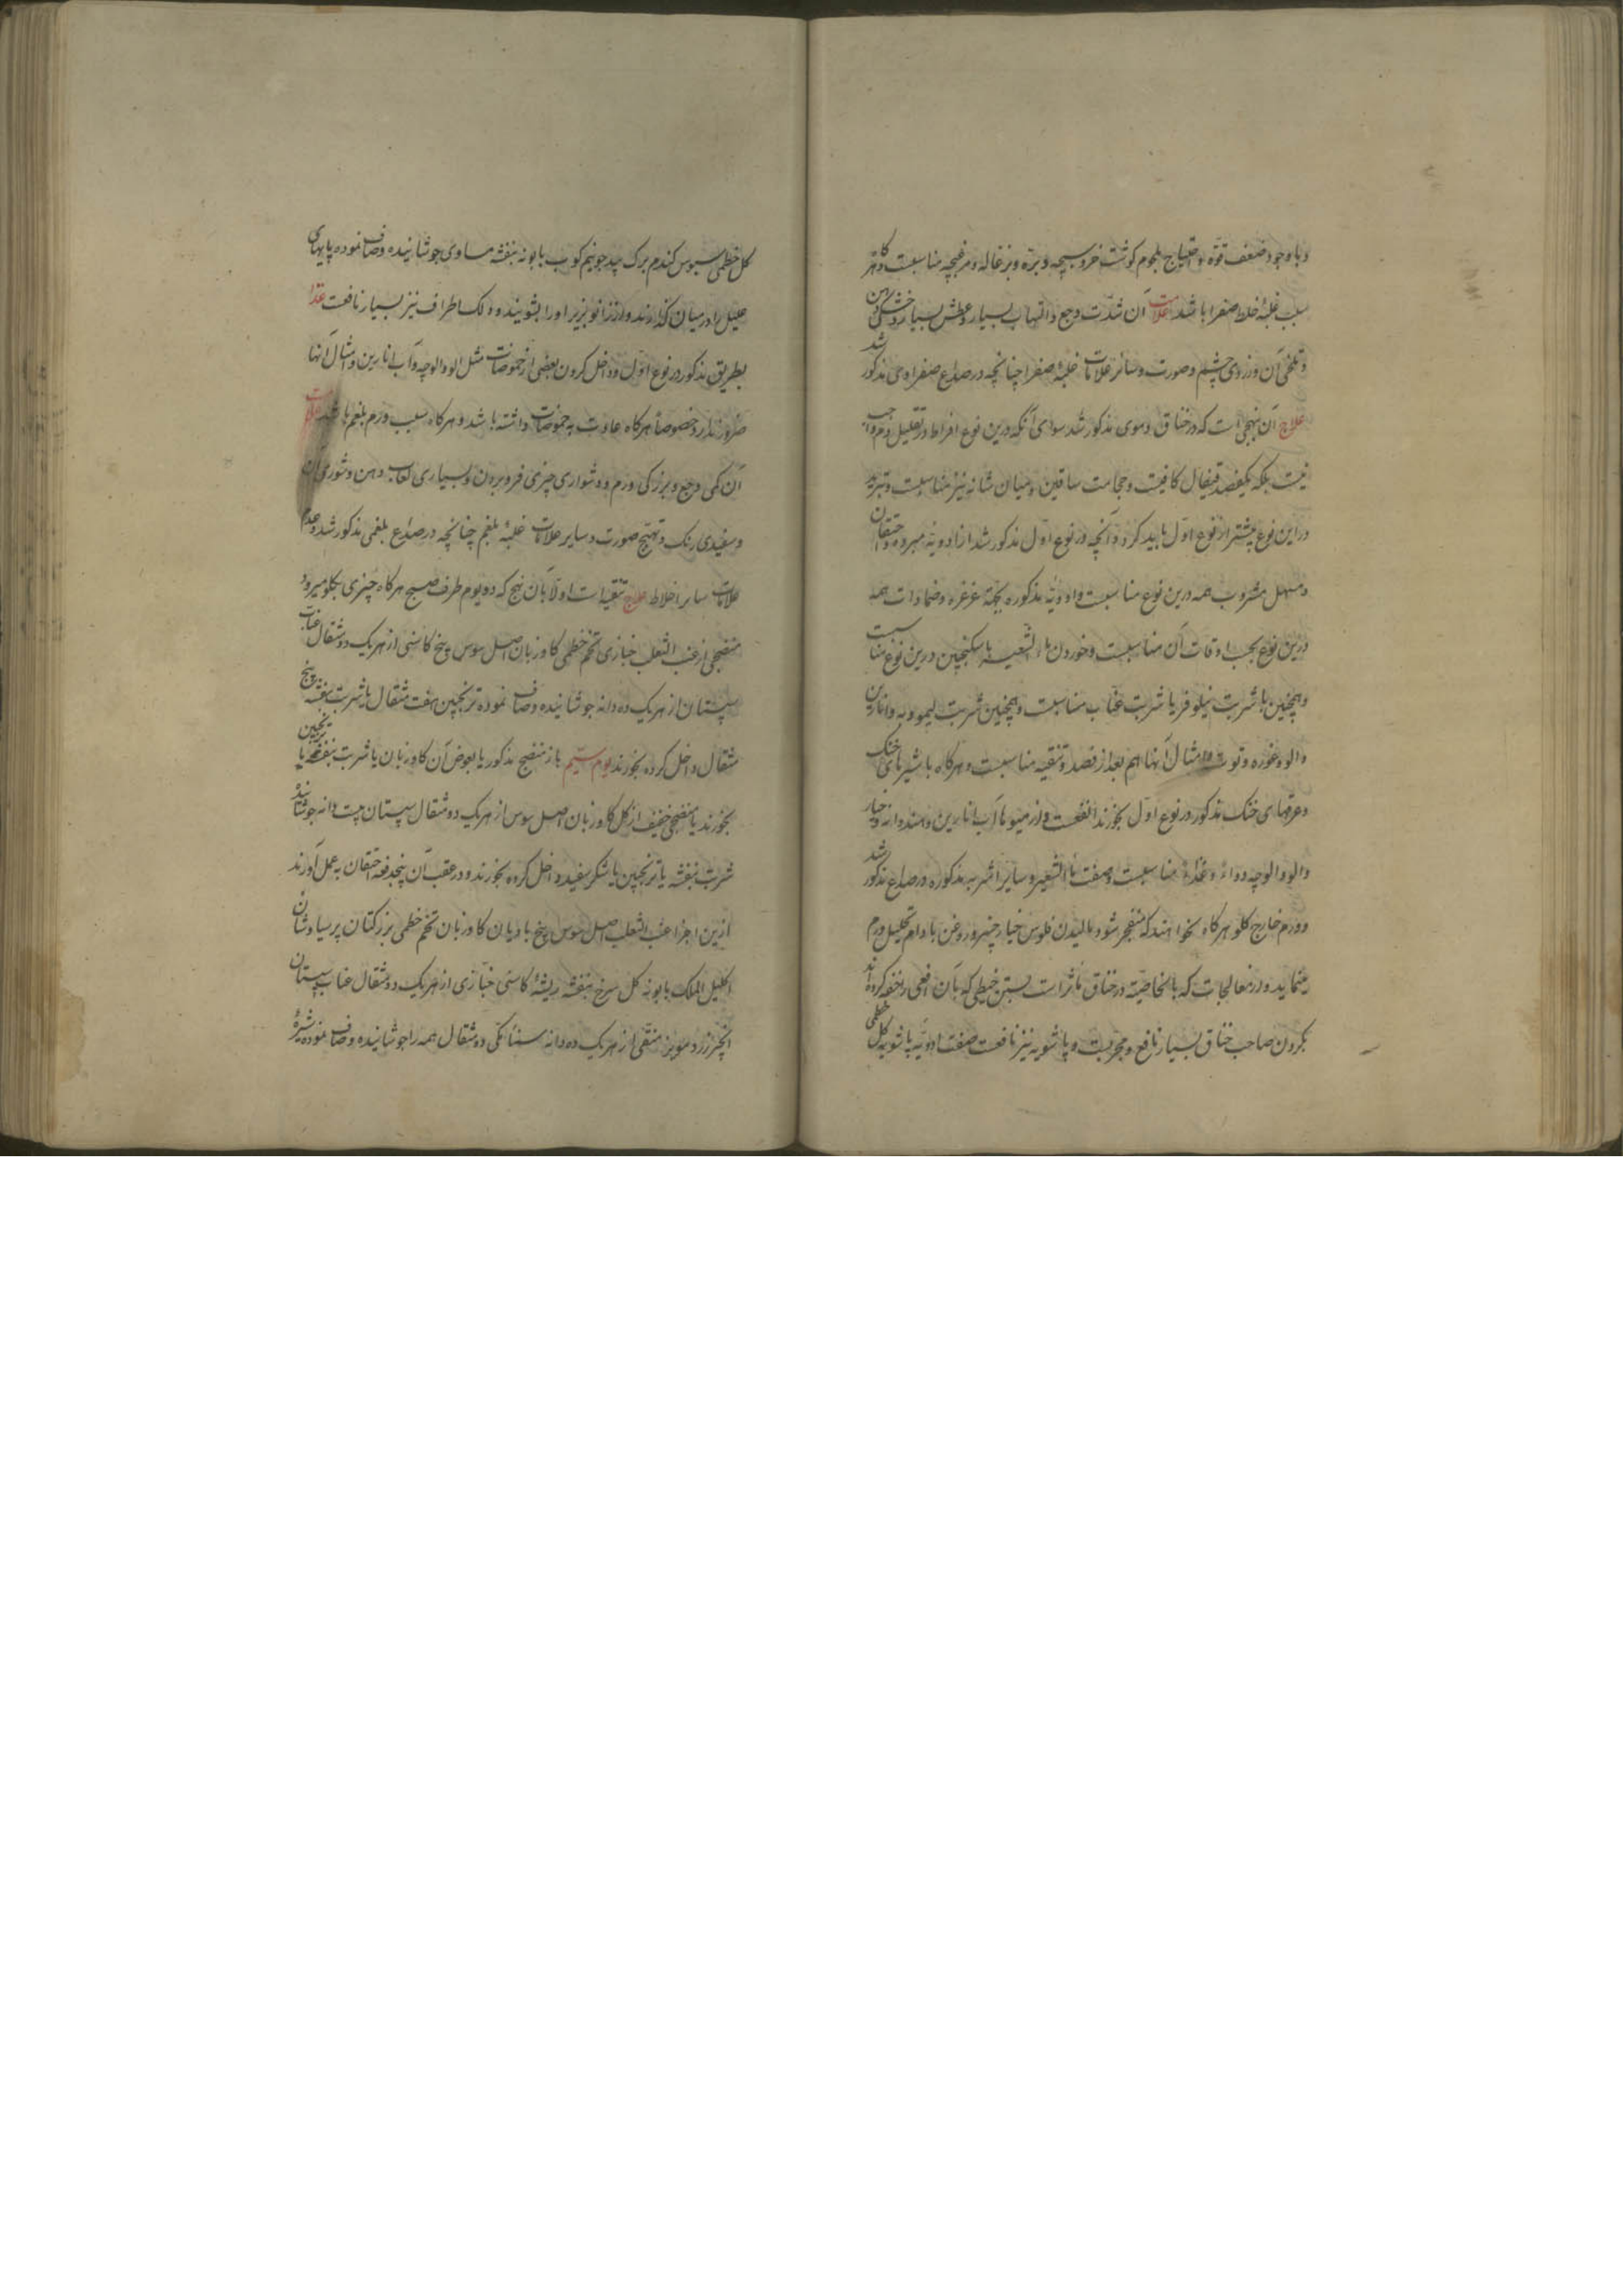 وباوجود ضعف قوّه و احتیاج بلحوم کوشت خروسبچه و برّه و بزغاله و مرغبچه مناسبست و اکر
سبب غلبهٔ خلط صفرا باشد علامت آن شدّت وجع و التهاب بسیار و عطش بسیار و خشکی دهن
و تلخی آن و زردی چشم و صورت و سائر علامات غلبهٔ صفرا چنانچه در صداع صفراوی مذکور شد
علاج آن بنهجی است که در خناق دموی مذکور شد سوای آنکه درین نوع افراط در تقلیل دم واجب
نیست بلکه یکفصد قیفال کافیست و حجامت ساقین و میان شانه نیز مناسبست و تبرید
در این نوع بیشتر از نوع اوّل باید کرد و آنچه در نوع اوّل مذکور شد از ادویهٔ مبرده و احتقان
و مسهل مشروب همه درین نوع مناسبست و ادویهٔ مذکوره بجهة غرغره و ضمادات همه
درین نوع بحسب اوقات آن مناسبست و خوردن ماء الشعیر با سکنجبین درین نوع مناسبست
و همچنین با شربت نیلوفر یا شربت عنّاب مناسبست و همچنین شربت لیمو و به و انارین
و الو و غوره و توت و امثال آنها هم بعد از فصد و تنقیه مناسبست و هرکاه با شیرهای خنک
و عرقهای خنک مذکور در نوع اوّل بخورند انفعست و از میوها آب انارین و هندوانه و خیار
و الو و الوچه دواءً و غذاءً مناسبست و صفت ماء الشعیر و سایر اشربه مذکوره در صداع مذکور شد
و ورم خارج کلو هرکاه نخواهند که منفجر شود مالیدن فلوس خیار چنبر و روغن بادام تحلیل ورم
مینماید و از معالجات که بالخاصیّة در خناق مأثر است بستن خیطی که بآن افعی را خفه کرده اند
بکردن صاحب خناق بسیار نافع و مجربست و پاشویه نیز نافعست صفت ادویهٔ پاشویه کل خطمی
کل خطمی سبوس کندم برک بید جو نیم کوب بابونه بنفشه مساوی جوشانیده و صاف نموده پایهای
علیل را در میان کذارند و از زانو بزیر او را بشویند و دلک اطراف نیز بسیار نافعست غذا
بطریق مذکور در نوع اوّل و داخل کردن بعضی از حموضات مثل الو و الوچه و آب انارین و امثال آنها
ضرور ندارد خصوصاً هرکاه عادت به حموضات داشته باشد و هرکاه سبب ورم بلغم باشد علامات
آن کمی وجع و بزرکی ورم و دشواری چیزی فرو بردن و بسیاری لعاب دهن و شوری آن
و سفیدی رنک و تهبّج صورت و سایر علامات غلبهٔ بلغم چنانچه در صداع بلغمی مذکور شد و عدم
علامات سایر اخلاط علاج تنقیه است اولاً بآن نهج که دو یوم طرف صبح هرکاه چیزی بکلو میرود
منضجی از عنب الثعلب خبازی تخم خطمی کاوزبان اصل سوس بیخ کاسنی از هریک دو مثقال عناب
سپستان از هریک ده دانه جوشانیده و صاف نموده ترنجبین هفت مثقال یا شربت بنفشه پنج
مثقال داخل کرده بخورند یوم سیّم باز منضج مذکور یا بعوض آن کاوزبان با شربت بنفشه یا ترنجبین
بخورند یا منضجی خفیف از کل کاوزبان اصل سوس از هریک دو مثقال سپستان بیست دانه جوشانیده
شربت بنفشه یا ترنجبین یا شکر سفید داخل کرده بخورند و در عقب آن پنجدفعه احتقان به عمل آورند
ازین اجزا عنب الثعلب اصل سوس بیخ بادیان کاوزبان تخم خطمی بزرکتان پرسیاوشان
اکلیل الملک بابونه کل سرخ بنفشه ریشهٔ کاسنی خبّازی از هریک دو مثقال عناب سپستان
انجیر زرد مویز منقّی از هریک ده دانه سناء مکّی دو مثقال همه را جوشانیده و صاف نموده شیرهٔ